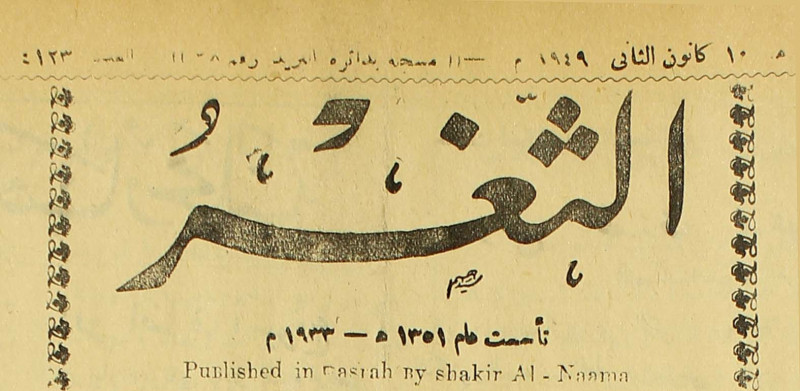 هـ ١٠ كانون الثاني ١٩٤٩ م — مسجلة بدائرة البريد رقم العدد
الثغر
تأسست عام ١٣٥١ هـ — ١٩٣٣ م
Published in Basrah By shakir Al - Naama